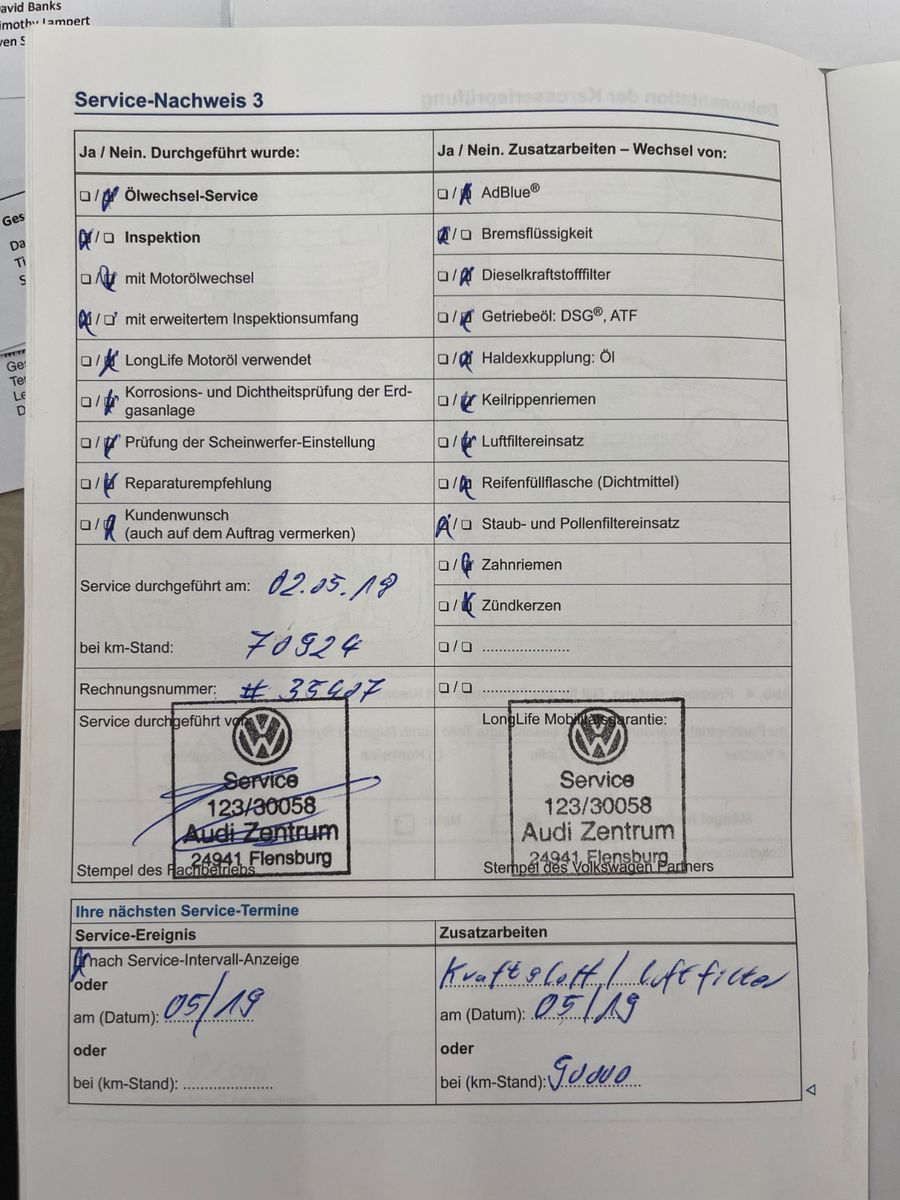 avid Banks
imothy Lampert
ven S
Ges
Da
Ti
S
Ge
Te
Le
D
Service-Nachweis 3
Ja / Nein. Durchgeführt wurde:
/ Ölwechsel-Service
/ Inspektion
/ mit Motorölwechsel
/ mit erweitertem Inspektionsumfang
/ LongLife Motoröl verwendet
/ Korrosions- und Dichtheitsprüfung der Erd-
gasanlage
/ Prüfung der Scheinwerfer-Einstellung
/ Reparaturempfehlung
/ Kundenwunsch
(auch auf dem Auftrag vermerken)
Service durchgeführt am: 02.05.18
bei km-Stand: 70924
Rechnungsnummer: # 35487
Service durchgeführt von:
Service
123/30058
Audi Zentrum
24941 Flensburg
Stempel des Fachbetriebs
Ja / Nein. Zusatzarbeiten – Wechsel von:
/ AdBlue®
/ Bremsflüssigkeit
/ Dieselkraftstofffilter
/ Getriebeöl: DSG®, ATF
/ Haldexkupplung: Öl
/ Keilrippenriemen
/ Luftfiltereinsatz
/ Reifenfüllflasche (Dichtmittel)
/ Staub- und Pollenfiltereinsatz
/ Zahnriemen
/ Zündkerzen
/ .....................
/ .....................
LongLife Mobilitätsgarantie:
Service
123/30058
Audi Zentrum
24941 Flensburg
Stempel des Volkswagen Partners
Ihre nächsten Service-Termine
Service-Ereignis
nach Service-Intervall-Anzeige
oder
am (Datum): 05/19
oder
bei (km-Stand): .....................
Zusatzarbeiten
Kraftstoff / Luftfilter
am (Datum): 05/19
oder
bei (km-Stand): 90000